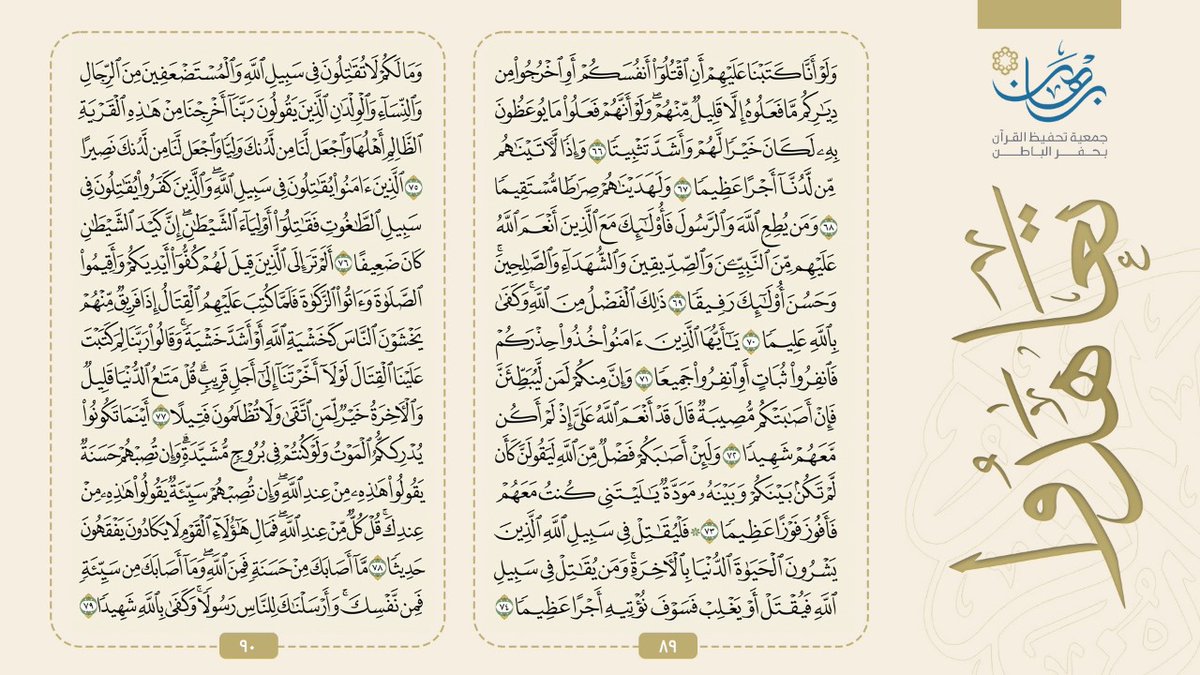 برهان
جمعية تحفيظ القرآن
بحفر الباطن
تعاهدوا
وَلَوْ أَنَّا كَتَبْنَا عَلَيْهِمْ أَنِ ٱقْتُلُوٓا۟ أَنفُسَكُمْ أَوِ ٱخْرُجُوا۟ مِن
دِيَـٰرِكُم مَّا فَعَلُوهُ إِلَّا قَلِيلٌ مِّنْهُمْ ۖ وَلَوْ أَنَّهُمْ فَعَلُوا۟ مَا يُوعَظُونَ
بِهِۦ لَكَانَ خَيْرًا لَّهُمْ وَأَشَدَّ تَثْبِيتًا ٦٦ وَإِذًا لَّـَٔاتَيْنَـٰهُم
مِّن لَّدُنَّآ أَجْرًا عَظِيمًا ٦٧ وَلَهَدَيْنَـٰهُمْ صِرَٰطًا مُّسْتَقِيمًا
٦٨ وَمَن يُطِعِ ٱللَّهَ وَٱلرَّسُولَ فَأُو۟لَـٰٓئِكَ مَعَ ٱلَّذِينَ أَنْعَمَ ٱللَّهُ
عَلَيْهِم مِّنَ ٱلنَّبِيِّـۧنَ وَٱلصِّدِّيقِينَ وَٱلشُّهَدَآءِ وَٱلصَّـٰلِحِينَ ۚ
وَحَسُنَ أُو۟لَـٰٓئِكَ رَفِيقًا ٦٩ ذَٰلِكَ ٱلْفَضْلُ مِنَ ٱللَّهِ ۚ وَكَفَىٰ
بِٱللَّهِ عَلِيمًا ٧٠ يَـٰٓأَيُّهَا ٱلَّذِينَ ءَامَنُوا۟ خُذُوا۟ حِذْرَكُمْ
فَٱنفِرُوا۟ ثُبَاتٍ أَوِ ٱنفِرُوا۟ جَمِيعًا ٧١ وَإِنَّ مِنكُمْ لَمَن لَّيُبَطِّئَنَّ
فَإِنْ أَصَـٰبَتْكُم مُّصِيبَةٌ قَالَ قَدْ أَنْعَمَ ٱللَّهُ عَلَىَّ إِذْ لَمْ أَكُن
مَّعَهُمْ شَهِيدًا ٧٢ وَلَئِنْ أَصَـٰبَكُمْ فَضْلٌ مِّنَ ٱللَّهِ لَيَقُولَنَّ كَأَن
لَّمْ تَكُنۢ بَيْنَكُمْ وَبَيْنَهُۥ مَوَدَّةٌ يَـٰلَيْتَنِى كُنتُ مَعَهُمْ
فَأَفُوزَ فَوْزًا عَظِيمًا ٧٣ ۞ فَلْيُقَـٰتِلْ فِى سَبِيلِ ٱللَّهِ ٱلَّذِينَ
يَشْرُونَ ٱلْحَيَوٰةَ ٱلدُّنْيَا بِٱلْـَٔاخِرَةِ ۚ وَمَن يُقَـٰتِلْ فِى سَبِيلِ
ٱللَّهِ فَيُقْتَلْ أَوْ يَغْلِبْ فَسَوْفَ نُؤْتِيهِ أَجْرًا عَظِيمًا ٧٤
٨٩
وَمَا لَكُمْ لَا تُقَـٰتِلُونَ فِى سَبِيلِ ٱللَّهِ وَٱلْمُسْتَضْعَفِينَ مِنَ ٱلرِّجَالِ
وَٱلنِّسَآءِ وَٱلْوِلْدَٰنِ ٱلَّذِينَ يَقُولُونَ رَبَّنَآ أَخْرِجْنَا مِنْ هَـٰذِهِ ٱلْقَرْيَةِ
ٱلظَّالِمِ أَهْلُهَا وَٱجْعَل لَّنَا مِن لَّدُنكَ وَلِيًّا وَٱجْعَل لَّنَا مِن لَّدُنكَ نَصِيرًا
٧٥ ٱلَّذِينَ ءَامَنُوا۟ يُقَـٰتِلُونَ فِى سَبِيلِ ٱللَّهِ ۖ وَٱلَّذِينَ كَفَرُوا۟ يُقَـٰتِلُونَ فِى
سَبِيلِ ٱلطَّـٰغُوتِ فَقَـٰتِلُوٓا۟ أَوْلِيَآءَ ٱلشَّيْطَـٰنِ ۖ إِنَّ كَيْدَ ٱلشَّيْطَـٰنِ
كَانَ ضَعِيفًا ٧٦ أَلَمْ تَرَ إِلَى ٱلَّذِينَ قِيلَ لَهُمْ كُفُّوٓا۟ أَيْدِيَكُمْ وَأَقِيمُوا۟
ٱلصَّلَوٰةَ وَءَاتُوا۟ ٱلزَّكَوٰةَ فَلَمَّا كُتِبَ عَلَيْهِمُ ٱلْقِتَالُ إِذَا فَرِيقٌ مِّنْهُمْ
يَخْشَوْنَ ٱلنَّاسَ كَخَشْيَةِ ٱللَّهِ أَوْ أَشَدَّ خَشْيَةً ۚ وَقَالُوا۟ رَبَّنَا لِمَ كَتَبْتَ
عَلَيْنَا ٱلْقِتَالَ لَوْلَآ أَخَّرْتَنَآ إِلَىٰٓ أَجَلٍ قَرِيبٍ ۗ قُلْ مَتَـٰعُ ٱلدُّنْيَا قَلِيلٌ
وَٱلْـَٔاخِرَةُ خَيْرٌ لِّمَنِ ٱتَّقَىٰ وَلَا تُظْلَمُونَ فَتِيلًا ٧٧ أَيْنَمَا تَكُونُوا۟
يُدْرِككُّمُ ٱلْمَوْتُ وَلَوْ كُنتُمْ فِى بُرُوجٍ مُّشَيَّدَةٍ ۗ وَإِن تُصِبْهُمْ حَسَنَةٌ
يَقُولُوا۟ هَـٰذِهِۦ مِنْ عِندِ ٱللَّهِ ۖ وَإِن تُصِبْهُمْ سَيِّئَةٌ يَقُولُوا۟ هَـٰذِهِۦ مِنْ
عِندِكَ ۚ قُلْ كُلٌّ مِّنْ عِندِ ٱللَّهِ ۖ فَمَالِ هَـٰٓؤُلَآءِ ٱلْقَوْمِ لَا يَكَادُونَ يَفْقَهُونَ
حَدِيثًا ٧٨ مَّآ أَصَابَكَ مِنْ حَسَنَةٍ فَمِنَ ٱللَّهِ ۖ وَمَآ أَصَابَكَ مِن سَيِّئَةٍ
فَمِن نَّفْسِكَ ۚ وَأَرْسَلْنَـٰكَ لِلنَّاسِ رَسُولًا ۚ وَكَفَىٰ بِٱللَّهِ شَهِيدًا ٧٩
٩٠